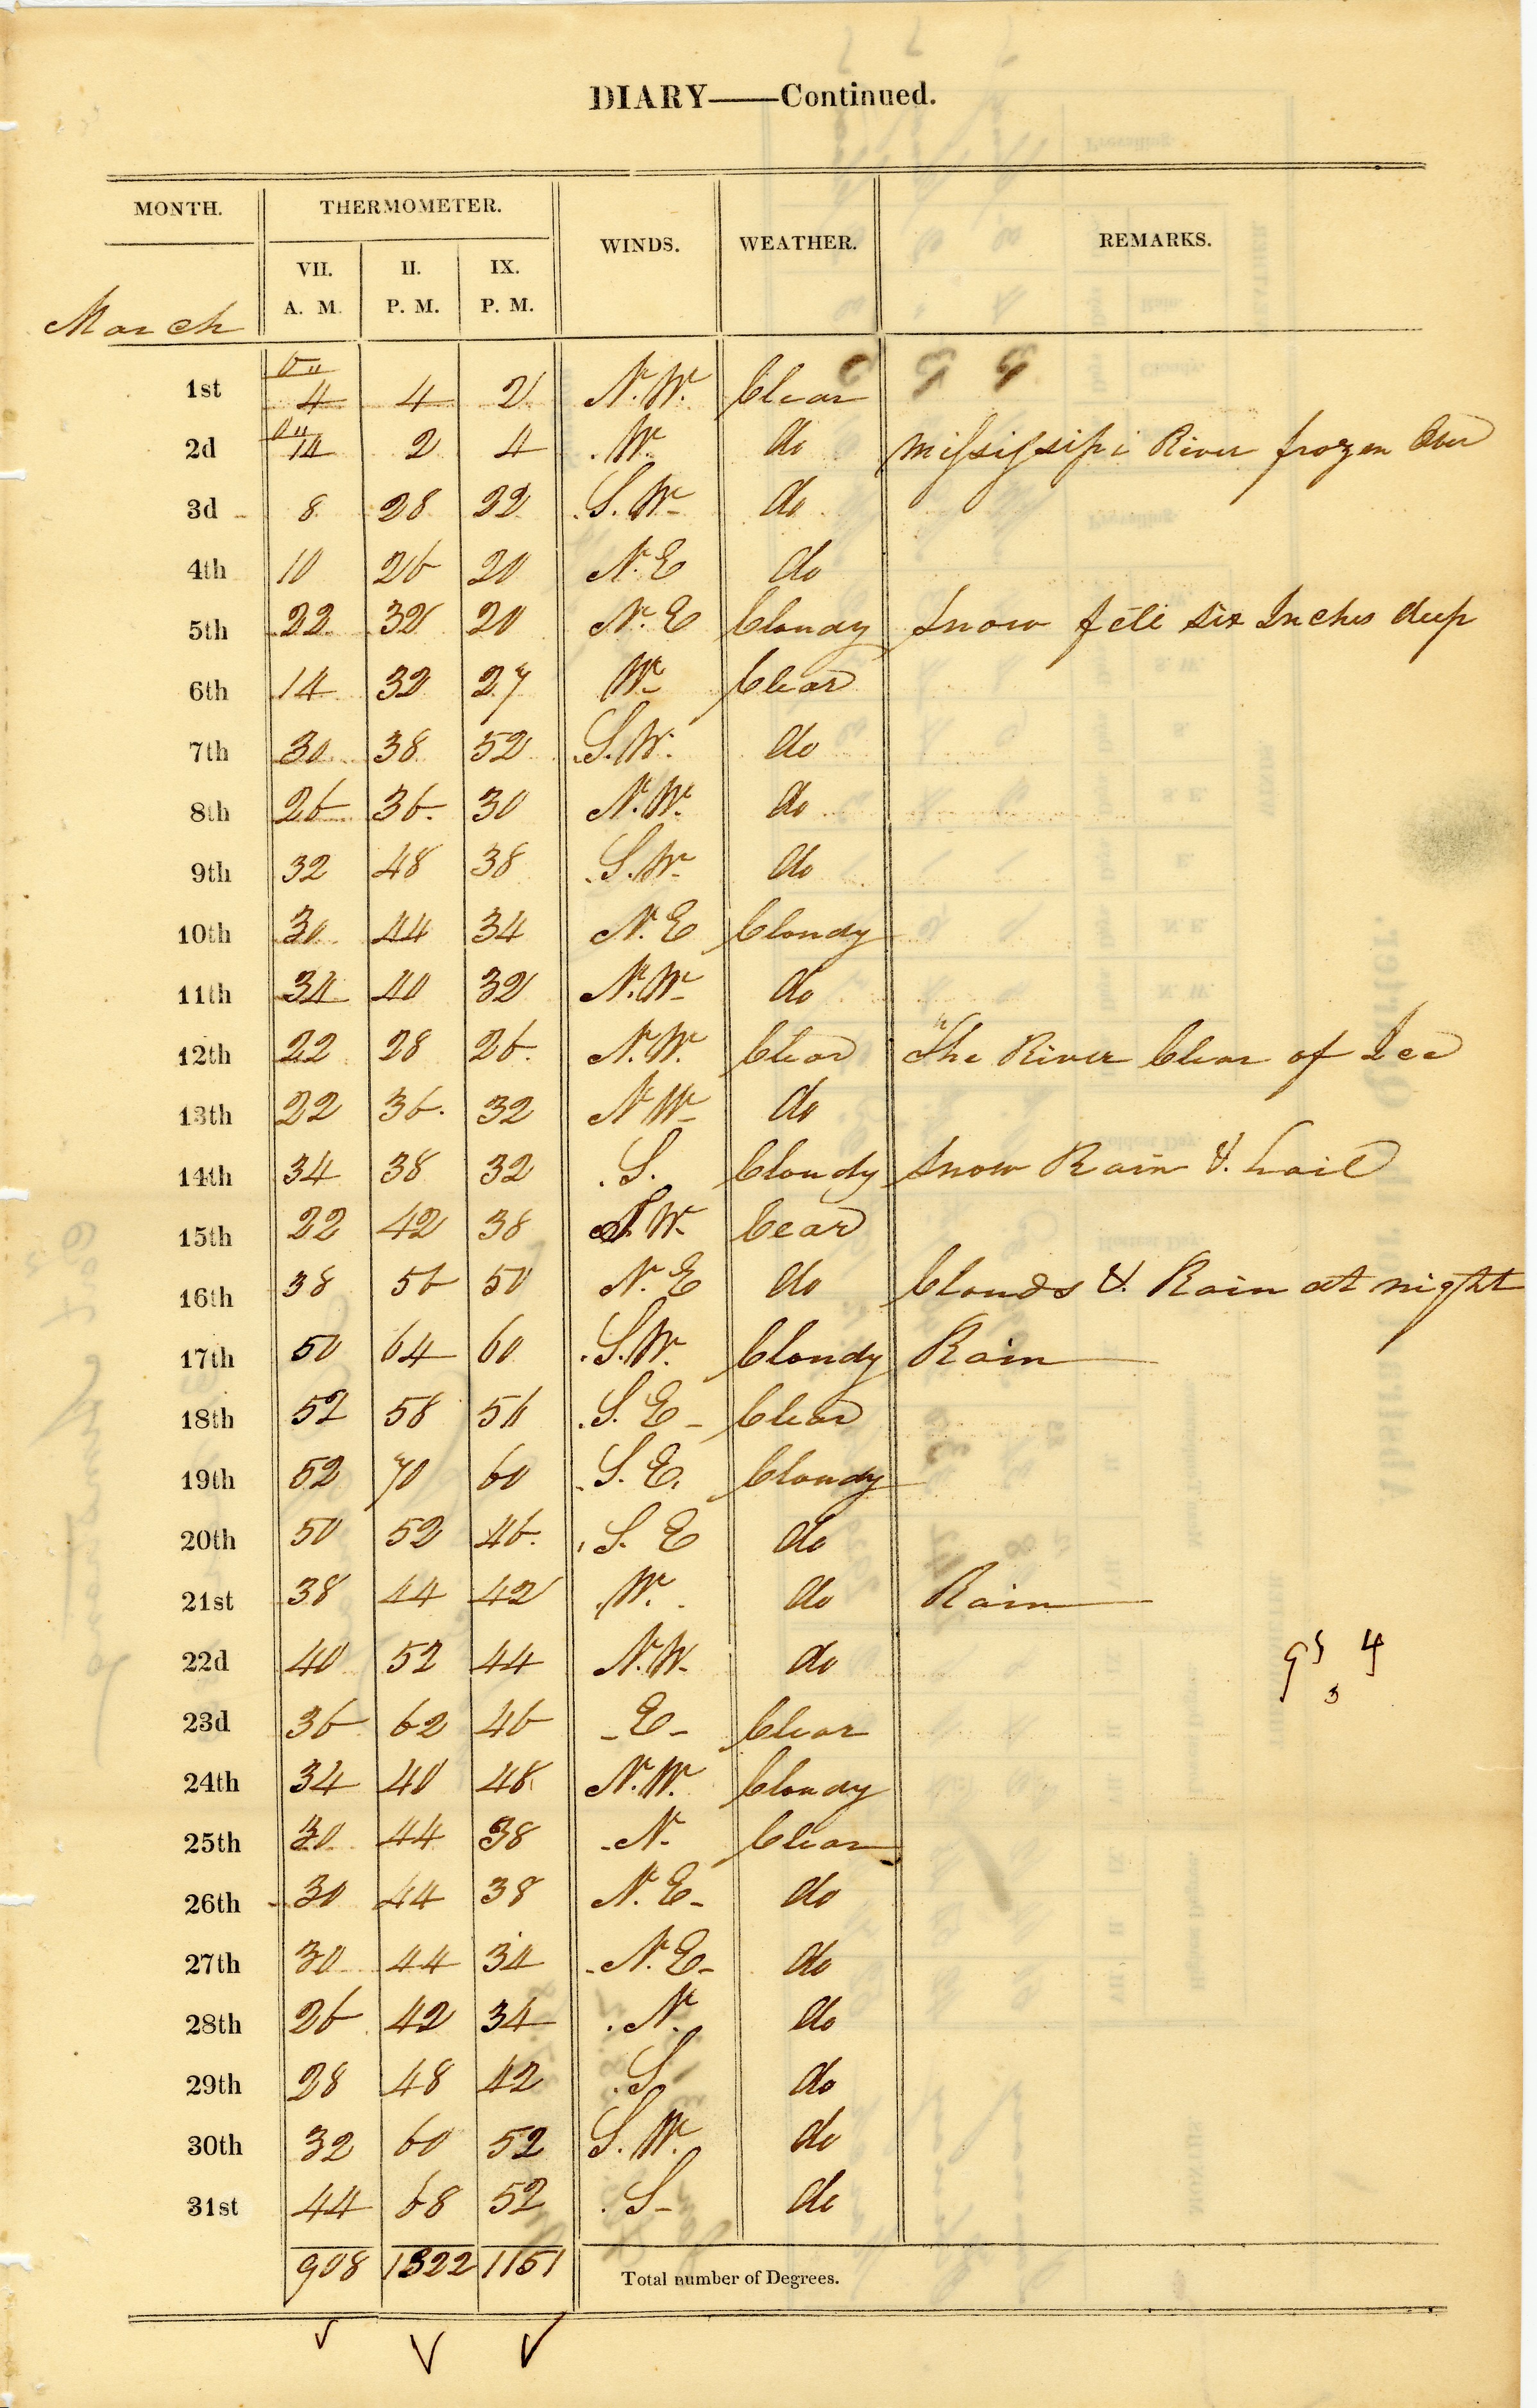 DIARY——Continued.
MONTH. THERMOMETER. WINDS. WEATHER. REMARKS.
VII. II. IX.
A. M. P. M. P. M.
March
1st 4 4 2 N.W. Clear
2d 14 2 4 W. do Missisipi River frozen Over
3d 8 28 22 S.W. do
4th 10 26 20 N.E do
5th 22 32 20 N.E Cloudy Snow fell six Inches deep
6th 14 32 27 W. Clear
7th 30 38 52 S.W. do
8th 26 36. 30 N.W. do
9th 32 48 38 S.W. do
10th 30 44 34 N.E Cloudy
11th 34 40 32 N.W. do
12th 22 28 26. N.W. Clear The River Clear of Ice
13th 22 36. 32 N W. do
14th 34 38 32 S. Cloudy Snow Rain &. hail
15th 22 42 38 S.W. Cear
16th 38 56 50 N.E do Clouds &. Rain at night
17th 50 64 60 S.W. Cloudy Rain
18th 52 58 50 S.E Clear
19th 52 70 60 S.E. Cloudy
20th 50 52 46. S.E do
21st 38 44 42 W. do Rain
22d 40 52 44 N.W. do
23d 36 62 46 E Clear
24th 34 40 48 N.W. Cloudy
25th 30 44 38 N. Clear
26th 30 44 38 N.E do
27th 30 44 34 N.E do
28th 26 42 34 N. do
29th 28 48 42 S. do
30th 32 60 52 S.W. do
31st 44 68 52 S do
908 1322 1151 Total number of Degrees.